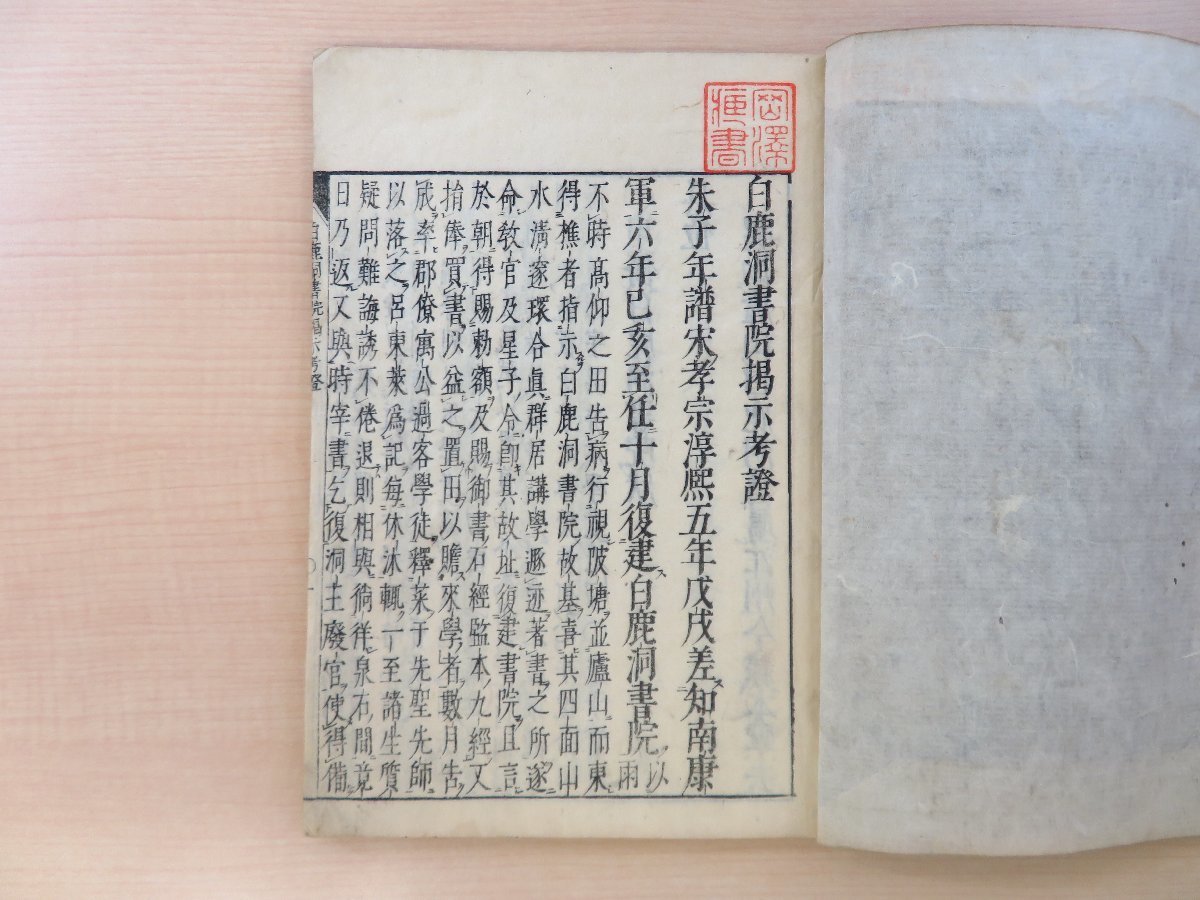 岡澤
藏書
白鹿洞書院掲示考證
朱子年譜宋孝宗淳熙五年戊戌差知南康
軍六年己亥至任十月復建白鹿洞書院以雨
不時高仰之田告病行視陂塘並廬山而東
得樵者指示白鹿洞書院故基喜其四面山
水清邃環合眞群居講學遯迹著書之所遂
命教官及星子令即其故址復建書院且言
於朝得賜勅額及賜御書石經監本九經又
捐俸買書以益之置田以贍來學者數月告
成率郡僚寓公過客學徒釋菜于先聖先師
以落之呂東萊爲記毎休沐輒一至諸生質
疑問難誨誘不倦退則相與徜徉泉石間竟
日乃返又與時宰書乞復洞主廢官使得備
白鹿洞書院掲示考證